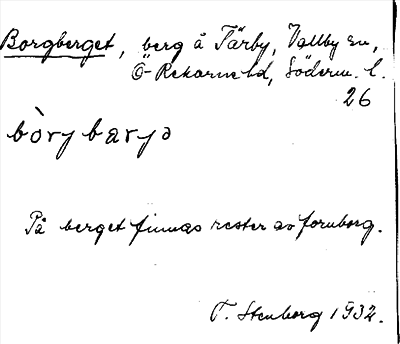 Borgberget, berg å Tärby, Vallby sn,
Ö-Rekarne hd, Söderm. l.
26
bòrjbarjə
På berget finnas rester av fornborg.
T. Stenborg 1932.